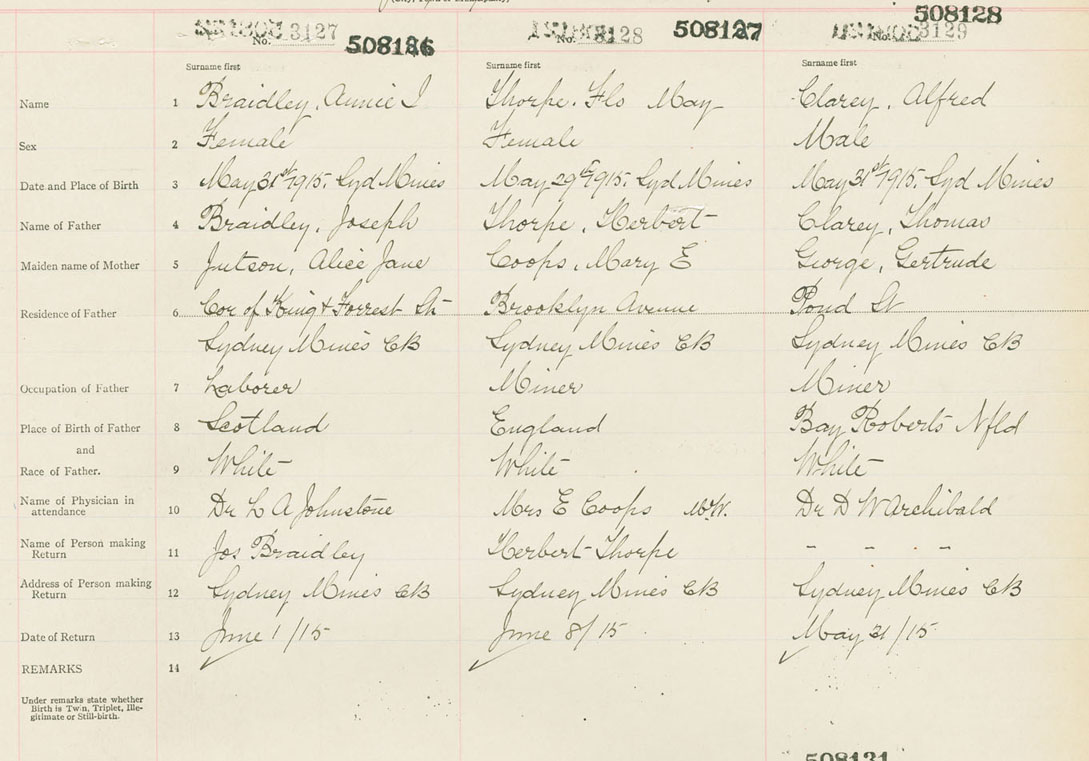 No. 3127 508126
No. 3128 508127
No. 3129 508128
Surname first Surname first Surname first
Name 1 Braidley, Annie I Thorpe. Flo May Clarey, Alfred
Sex 2 Female Female Male
Date and Place of Birth 3 May 31st 1915. Syd Mines May 29th 1915. Syd Mines May 31st 1915. Syd Mines
Name of Father 4 Braidley, Joseph Thorpe, Herbert Clarey, Thomas
Maiden name of Mother 5 Jutson, Alice Jane Coops, Mary E George, Gertrude
Residence of Father 6 Cor of King & Forrest St Brooklyn Avenue Pond St
Sydney Mines CB Sydney Mines CB Sydney Mines CB
Occupation of Father 7 Laborer Miner Miner
Place of Birth of Father 8 Scotland England Bay Roberts Nfld
and
Race of Father. 9 White White White
Name of Physician in
attendance 10 Dr L A Johnstone Mrs E Coops M.W. Dr D W Archibald
Name of Person making
Return 11 Jos Braidley Herbert Thorpe - - - -
Address of Person making
Return 12 Sydney Mines CB Sydney Mines CB Sydney Mines CB
Date of Return 13 June 1/15 June 8/15 May 31/15
REMARKS 14
Under remarks state whether
Birth is Twin, Triplet, Ille-
gitimate or Still-birth.
508131